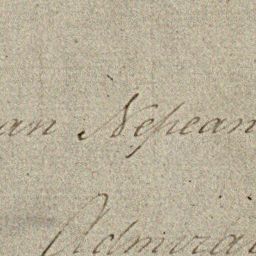 an Nepean
Admiral